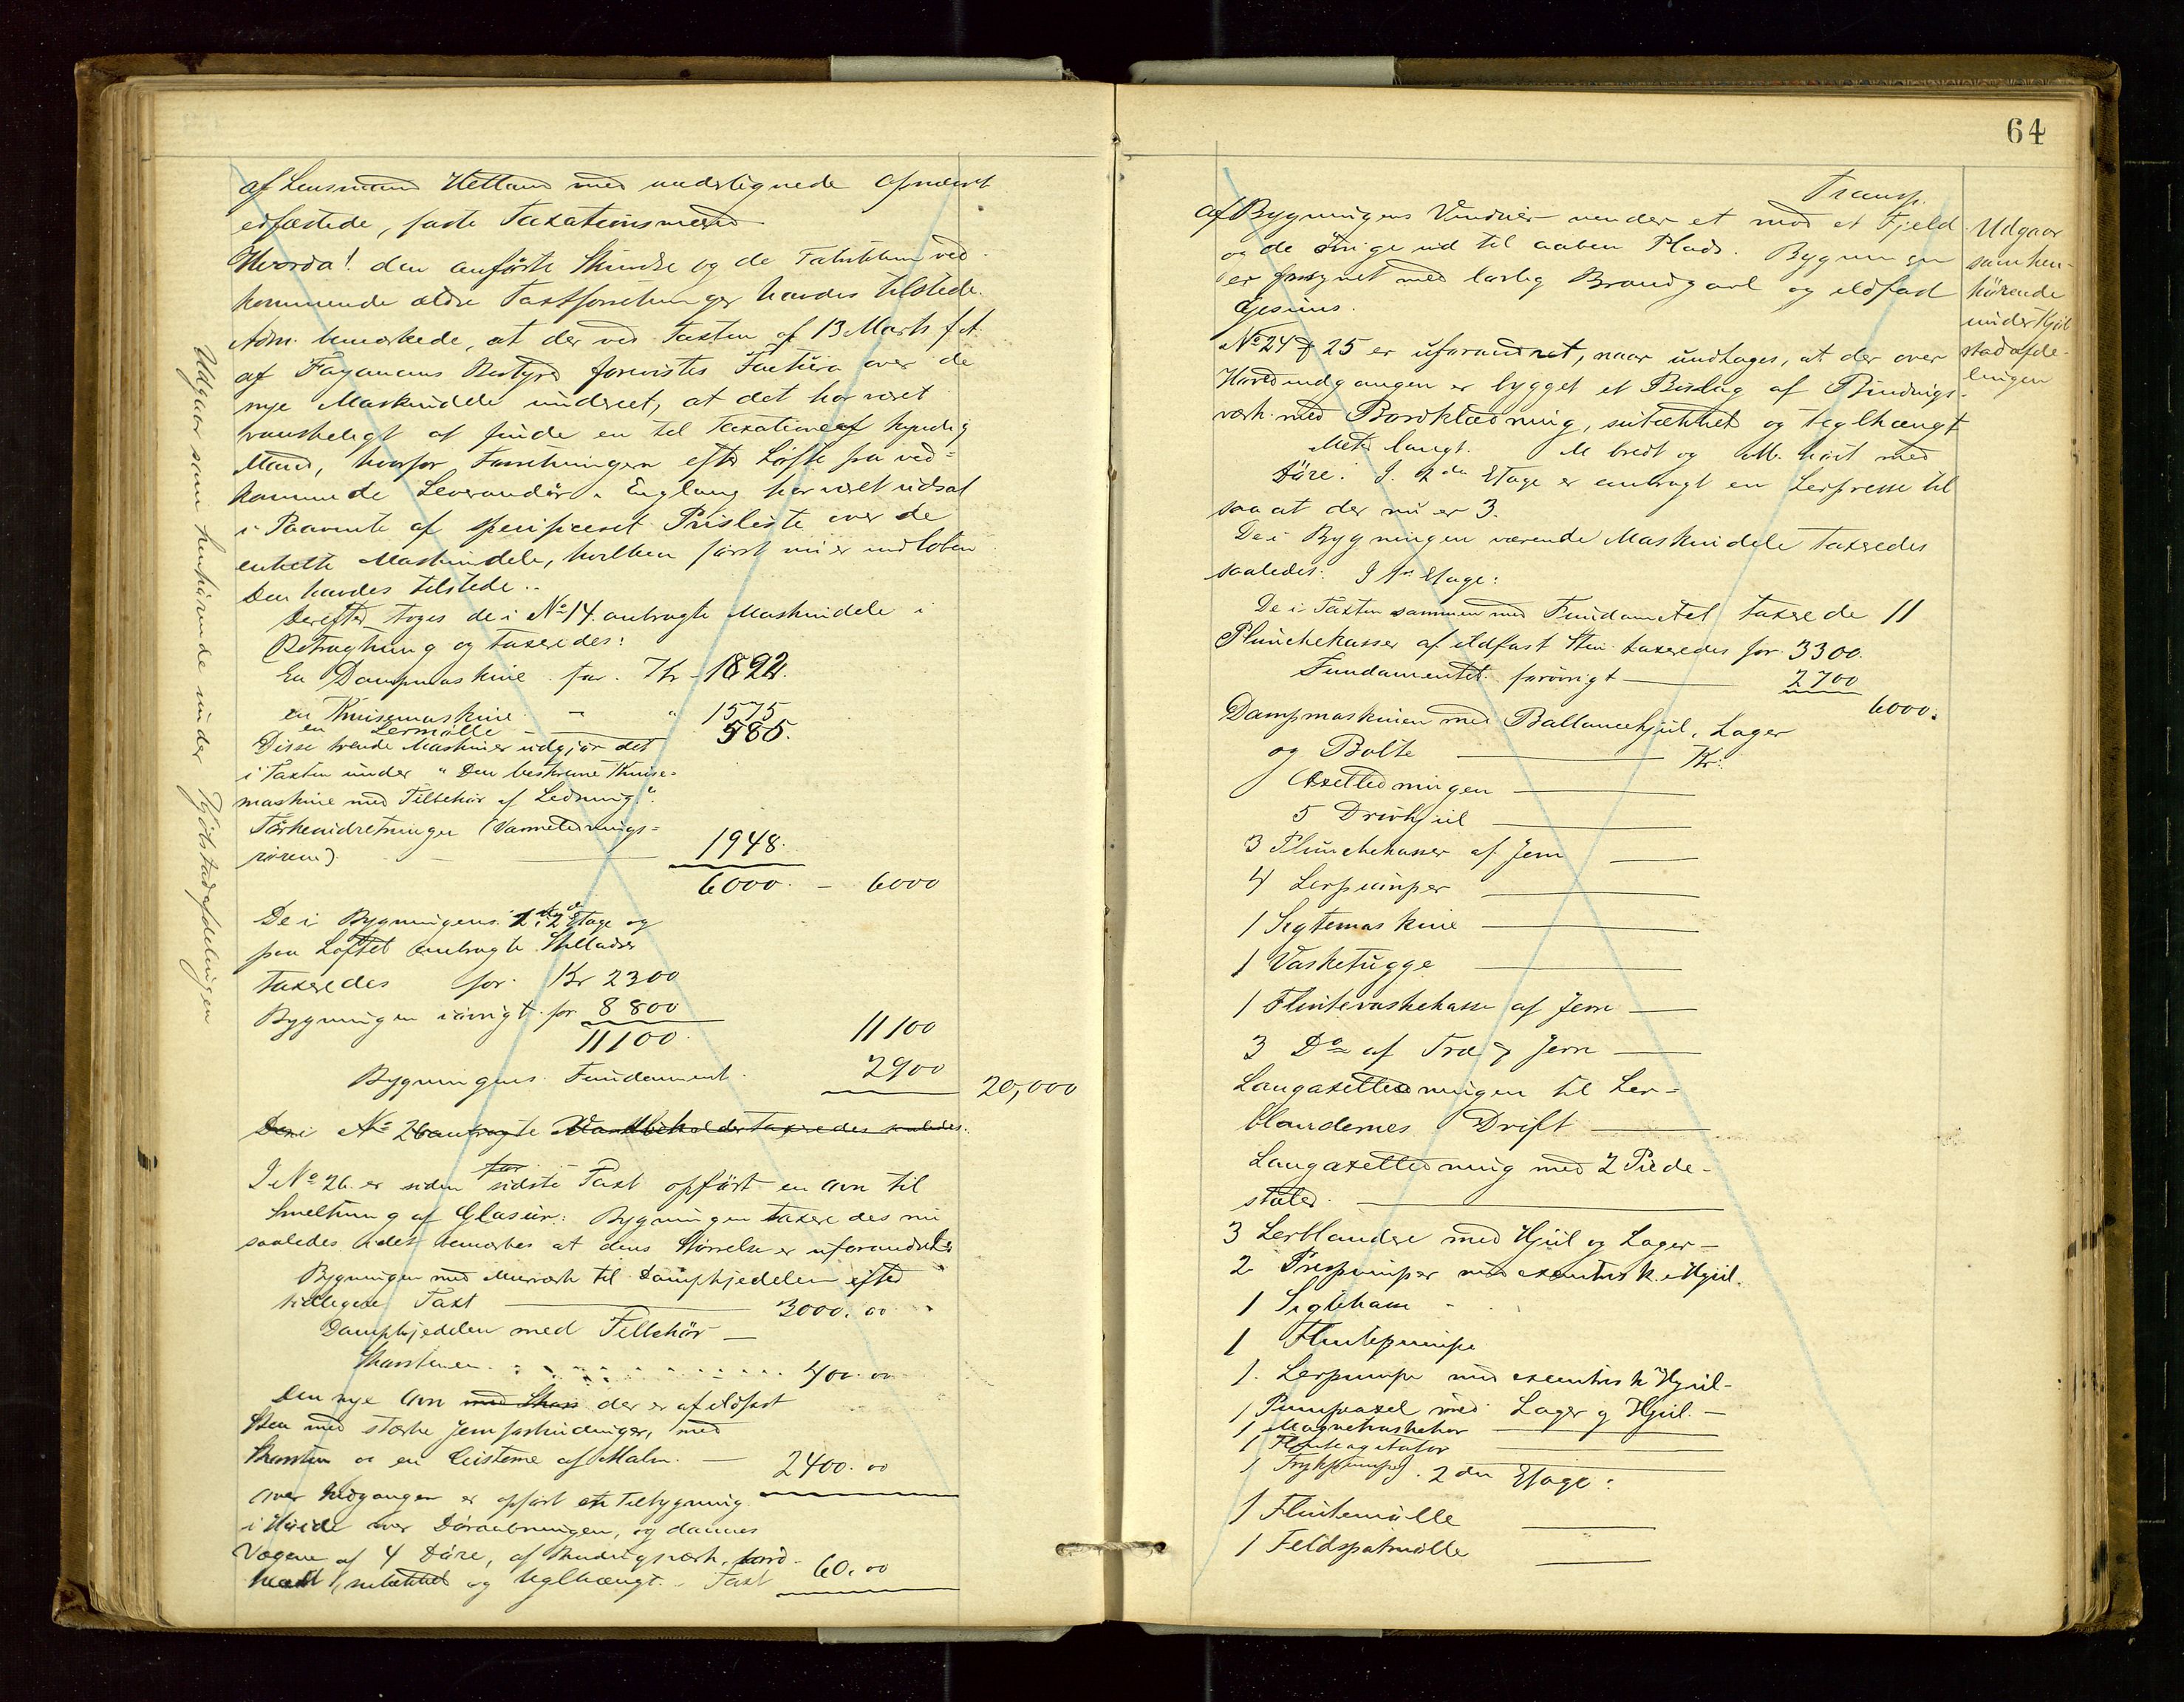 af Lensmand Hetland med undertegnede opnævnt
edfæstede, faste Taxationsmænd
Hvorda! den anførte Skindse og de Fabrikken ved-
kommende ældre Taxtforretninger havdes tilstede.
Adm. bemærkede, at der ved Taxten af 13 Marts f. A.
af Fayancens Bestyrer forevistes Factura over de
nye Maskindele undtaget, at det har været
vanskeligt at finde en til Taxationen kyndig
Mand, hvorfor Forretningen efter Løfte fra ved=
kommende Leverandør i England har været udsat
i Paavente af specificeret Prisliste over de
enkelte Maskindele, hvilken først nu er indløben
Den havdes tilstede..
Derefter toges de i No 14 anbragte Maskindele i
Betragtning og taxeredes:
En Dampmaskine for Kr 1892.
en Knusemaskine - " 1575
en Lermølle - 585.
Disse trende Maskiner udgjør det
i Taxten under "Den beskrevne Knuse=
maskine med Tilbehør af Ledning".
Tørkeindretninger (Varmelednings=
rørene) - 1948.
6000. - 6000
De i Bygningens 1ste 2den Etage og
paa Loftet anbragte Stillader
taxeredes for Kr 2300
Bygningen iøvrigt for 8800
11100 11100
Bygningens Fundament. 2900
20,000
De i No 26 anbragte Vandbeholder taxeredes saaledes:
I No 26 er siden sidste Taxt opført en Ovn til
Smeltning af Glasur. Bygningen taxeredes nu
saaledes idet bemærkes at dens Størrelse er uforandret
Bygningen med Murværk til Dampkjedelen efter
tidligere Taxt 3000.00
Dampkjedelen med Tilbehør —
Skorstenen 400.00
Den nye Ovn med Skors der er af ildfast
Sten med stærke Jernforbindinger, med
Skorsten og en Cisterne af Malm. — 2400.00
Over Indgangen er opført en Tilbygning
i Høide over Døraabningen, og dannes
Væggene af 4 Døre, af Bindingsværk, bord-
klædt, sutækket og teglhængt. Taxt 60.00
Udgaar som henhørende under Kjøbstadafdelingen
64
Transp.
af Bygningens Vinduer vender et mod et Fjeld
og de øvrige ud til aaben Plads. Bygningen
er forsynet med lovlig Brandgavl og ildfast
Gesims.
No 24 & 25 er uforandret, naar undtages, at der over
Hovedindgangen er bygget et Bislag af Bindings-
værk med Bordklædning, sutækket og teglhængt
Meter langt. M bredt og M. høit med
Døre. I 2den Etage er anbragt en Lerpresse til
saa at der nu er 3.
De i Bygningen værende Maskindele taxeredes
saaledes: I 1ste Etage:
De i Taxten sammen med Fundamentet taxerede 11
Plunchekasser af ildfast Sten taxeredes for 3300.
Fundamentet forøvrigt — 2700
6000.
Dampmaskinen med Ballancehjul, Lager
og Bolte — Kr:
Axelledningen —
5 Drivhjul —
3 Plunchekasser af Jern —
4 Lerpumper —
1 Sigtemaskine —
1 Vasketugge —
1 Flintevaskekasse af Jern —
3 Do af Træ & Jern —
Langaxelledningen til Ler=
blandernes Drift —
Langaxelledning med 2 Piede-
staler —
3 Lerblandere med Hjul og Lager —
2 Prespumper med exentrisk Hjul.
1 Sigtekasse -
1 Flintepumpe
1. Lerpumpe med exentrisk Hjul —
1 Pumpeaxel med Lager og Hjul. —
1 Magnetvaskekar —
1 Flinteagitator —
1 Trykpumpe. 2den Etage:
1 Flintemølle —
1 Feldspatmølle —
Udgaar
som hen-
hørende
under Kjøb-
stadafde-
lingen